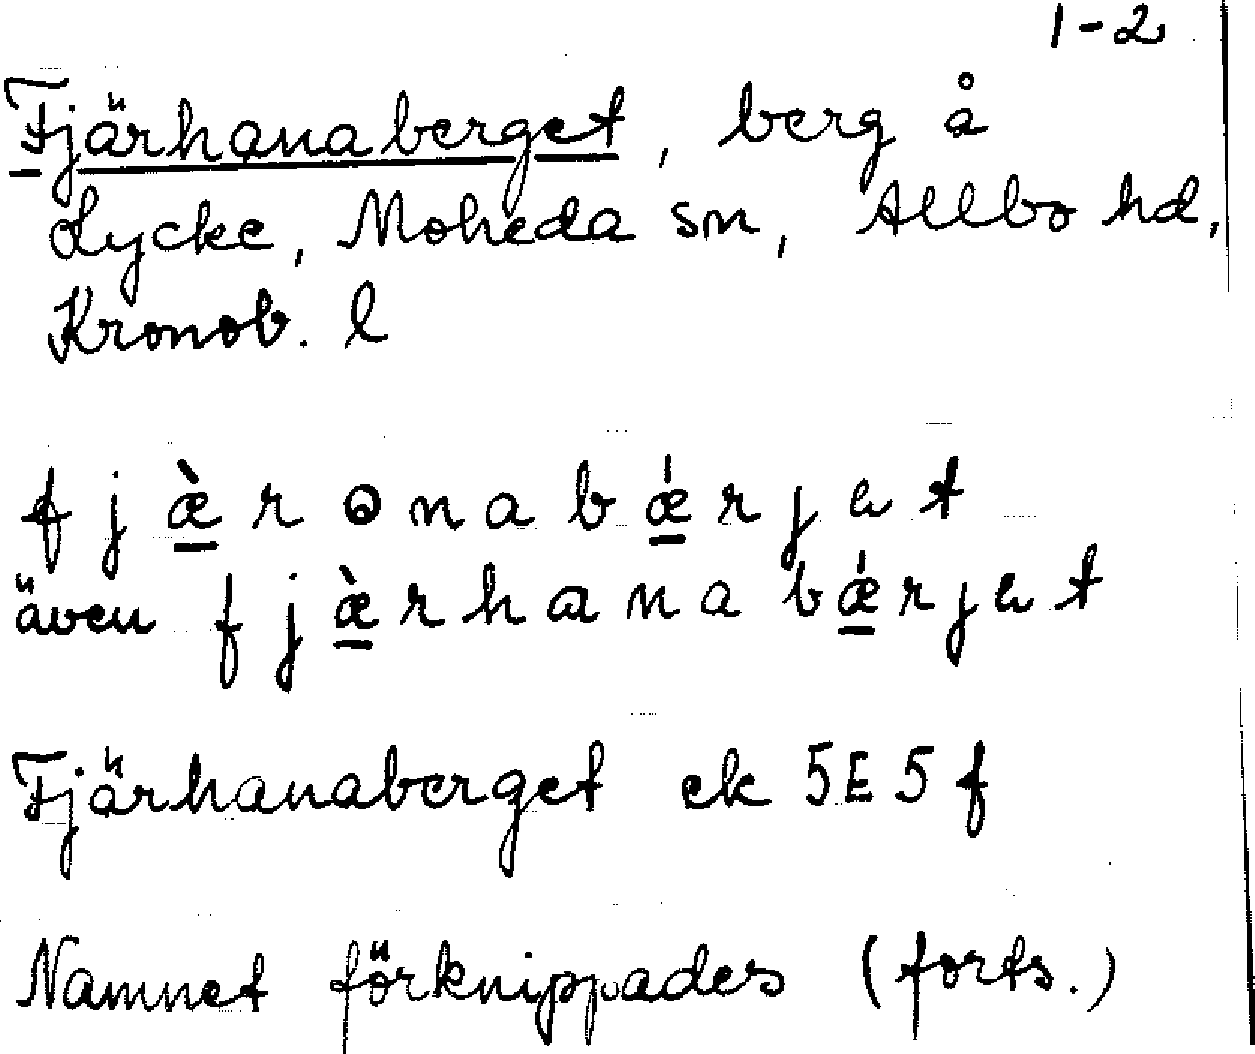 1-2
Fjärhanaberget, berg å
Lycke, Moheda sn, Allbo hd,
Kronob. l
f j æ̀ r ɷ n a b ǽ r j e t
även f j æ̀ r h a n a b ǽ r j e t
Fjärhanaberget ek 5E5f
Namnet förknippades (forts.)